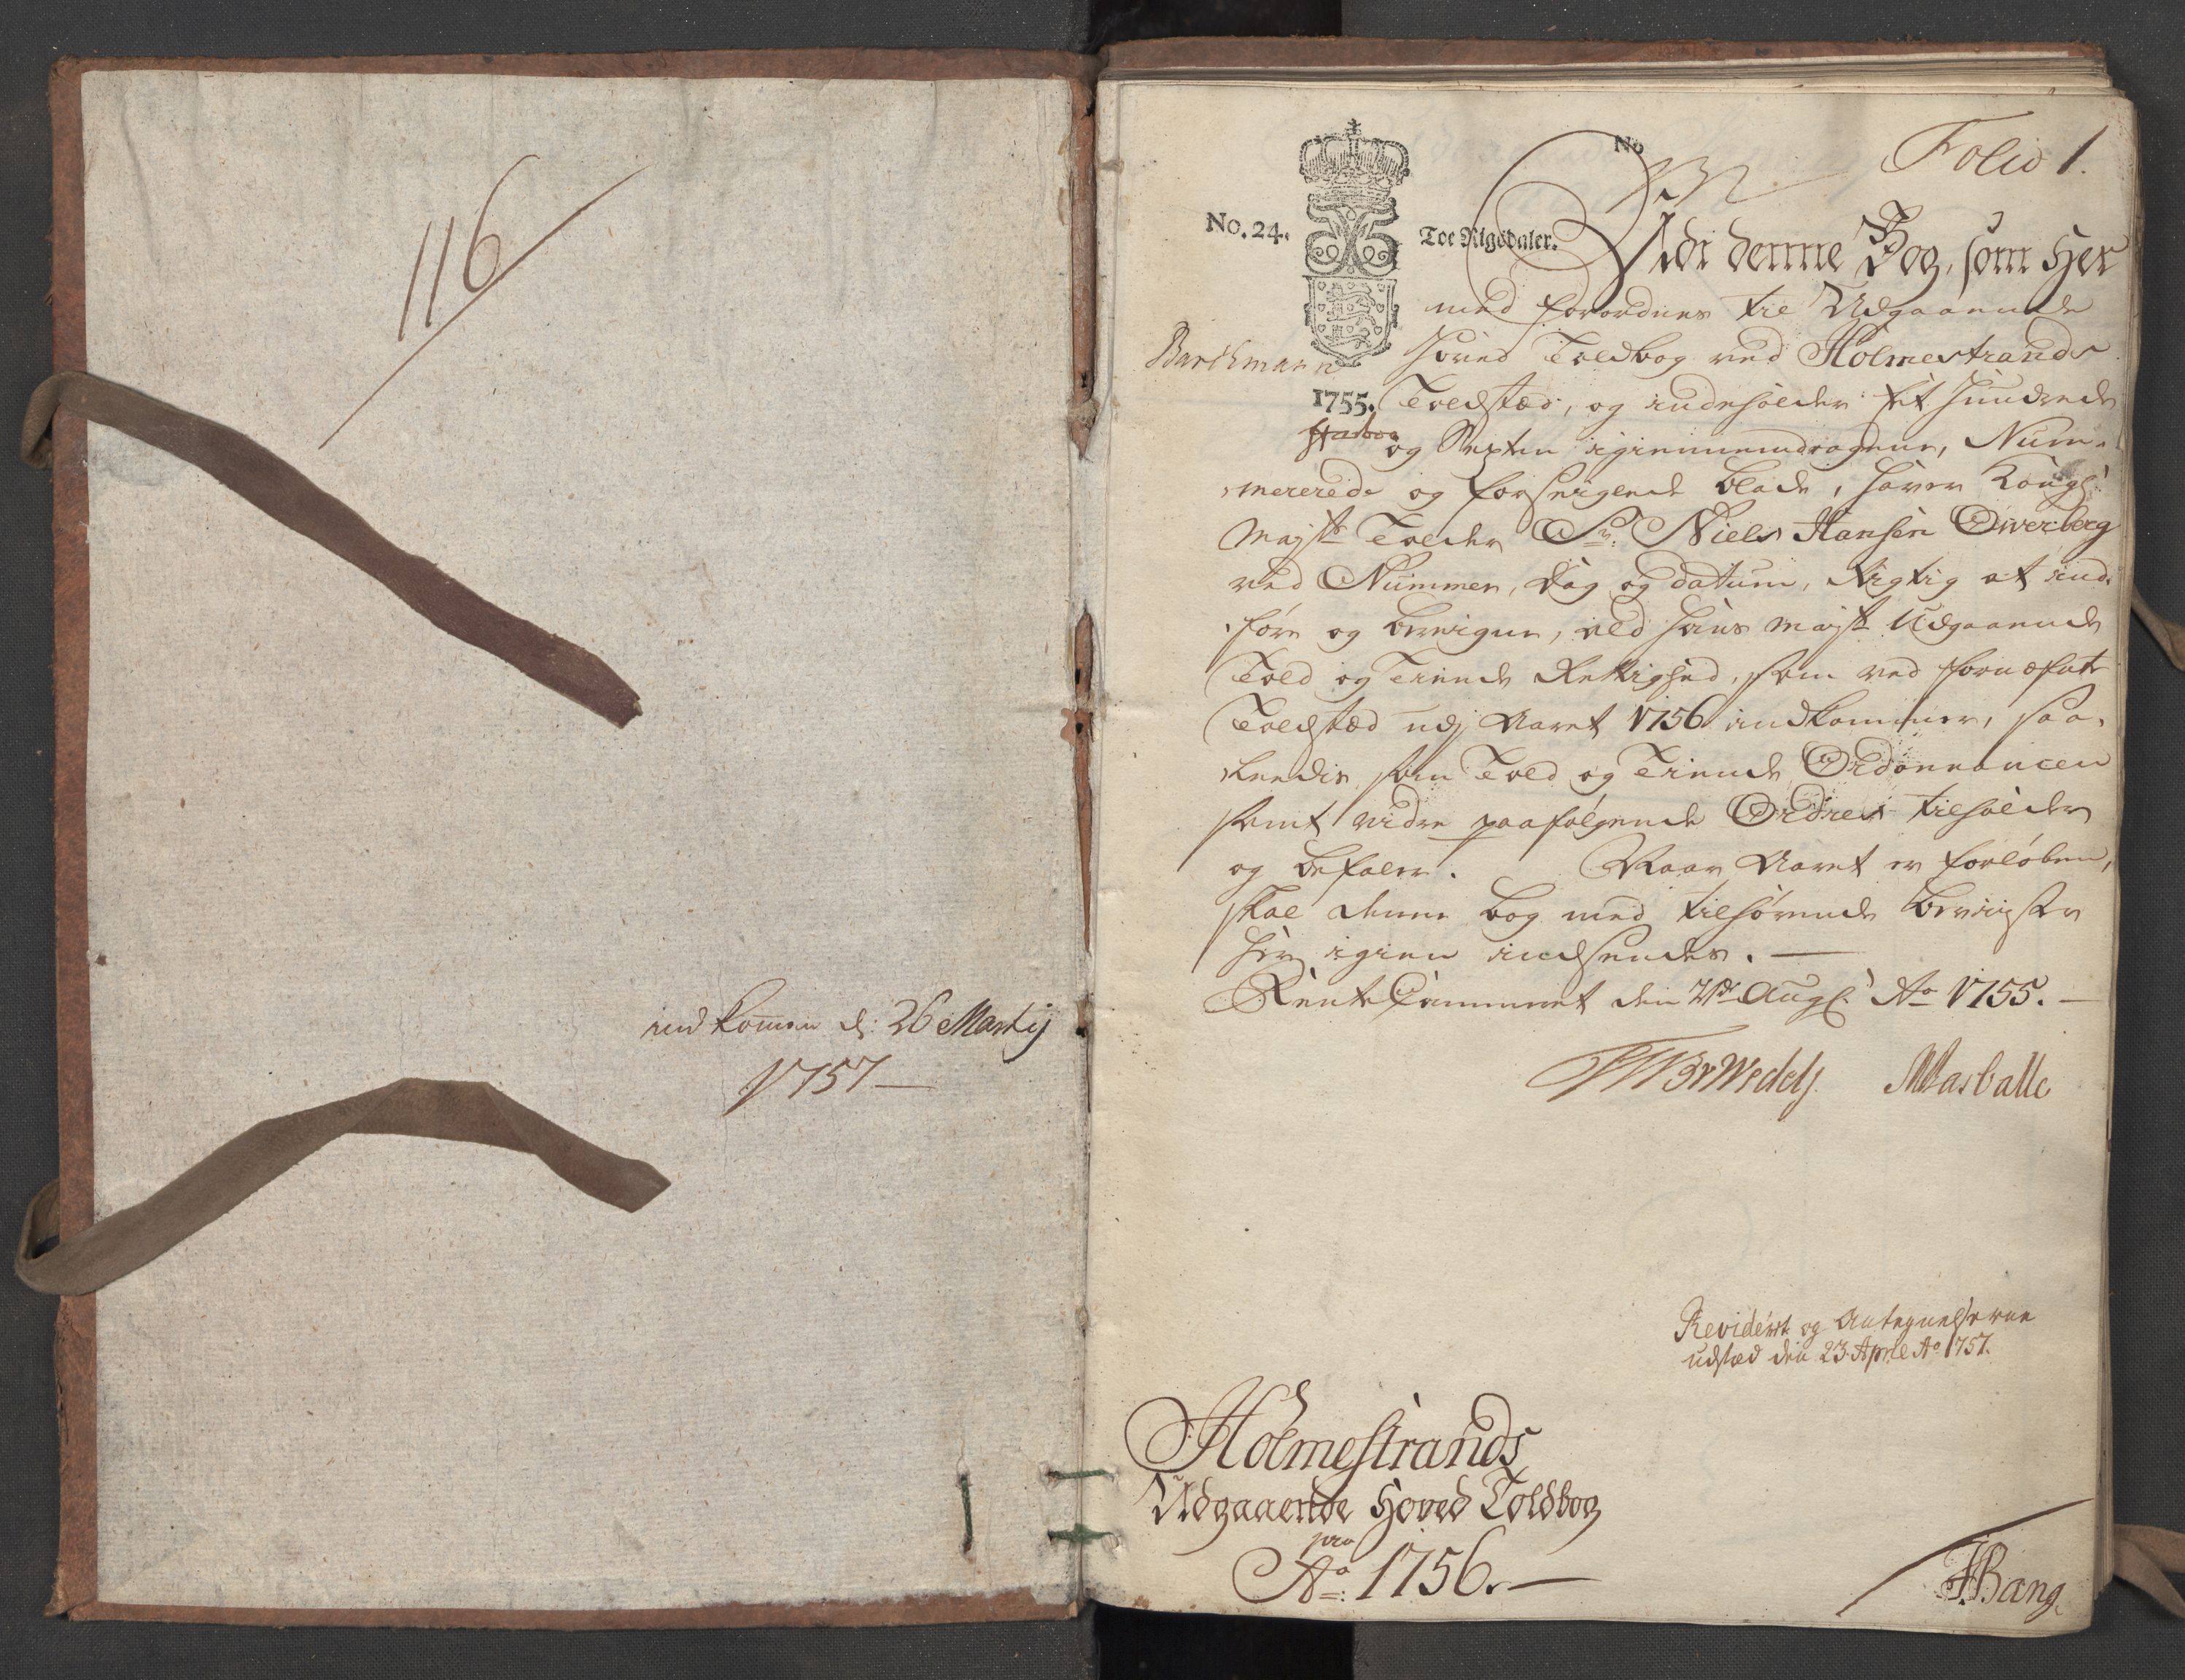 116
indkommen d: 26 Martij
1757
No
Folio 1.
No. 24.
Toe Rigsdaler.
Udi denne Bog, som Her
med forordnes til Udgaaende
Barchmann
Hoved Toldbog ved Holmestrands
1755.
Toldsted, og indeholder Et Hundrede
og Sexten igiennemdragene, Num-
mererede og forseiglede blade, haver Kongl:
Mayts Tolder Sr. Niels Hansen Overberg
ved Nummer, Dag og datum, Rigtig at ind-
føre og beregne, ald Hans Mayts Udgaaende
Told og Tiende Rettighed, som ved fornefnte
Toldsted udj Aaret 1756 indkommer, saa-
leedis som Told og Tiende Ordonnancen
samt vidre paafølgende Ordres tilholder
og befaler. Naar Aaret er forløben,
skal denne bog med tilhørende beviiser
her igien indsendes.
RenteCammeret den 21de Aug: Ao 1755.
Revideret og Antegnelserne
udsted den 23 Aprile Ao 1757.
Holmestrands
Udgaaende Hoved Toldbog
pro
Ao: 1756.
Bang